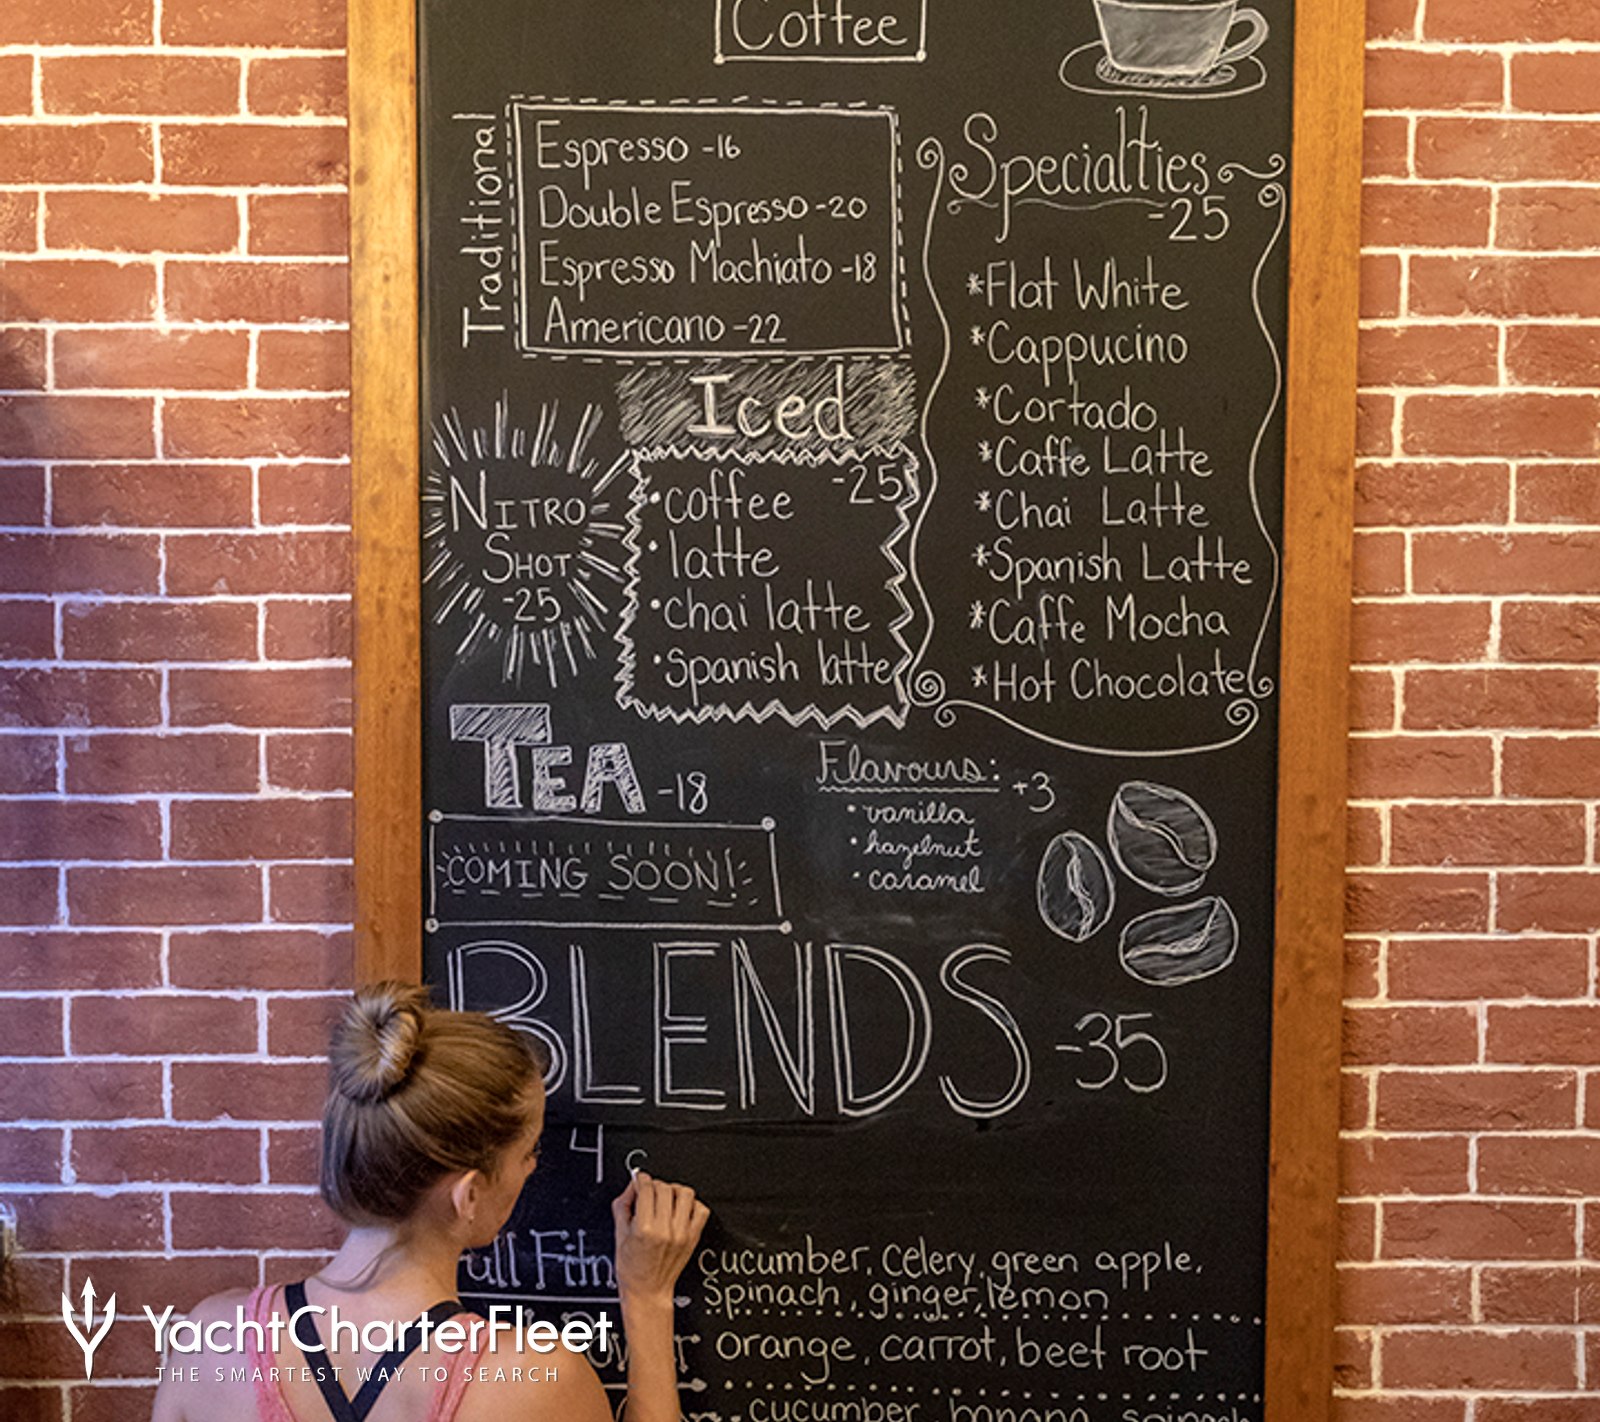 Coffee
Traditional
Espresso -16
Double Espresso -20
Espresso Machiato -18
Americano -22
Specialties
-25
*Flat White
*Cappucino
*Cortado
*Caffe Latte
*Chai Latte
*Spanish Latte
*Caffe Mocha
*Hot Chocolate
Iced
-25
•coffee
•latte
•chai latte
•spanish latte
NITRO
SHOT
-25
TEA -18
COMING SOON!
Flavours: +3
•vanilla
•hazelnut
•caramel
BLENDS -35
4
cucumber, celery, green apple,
spinach, ginger, lemon
orange, carrot, beet root
cucumber, banana, spinach
YachtCharterFleet
THE SMARTEST WAY TO SEARCH